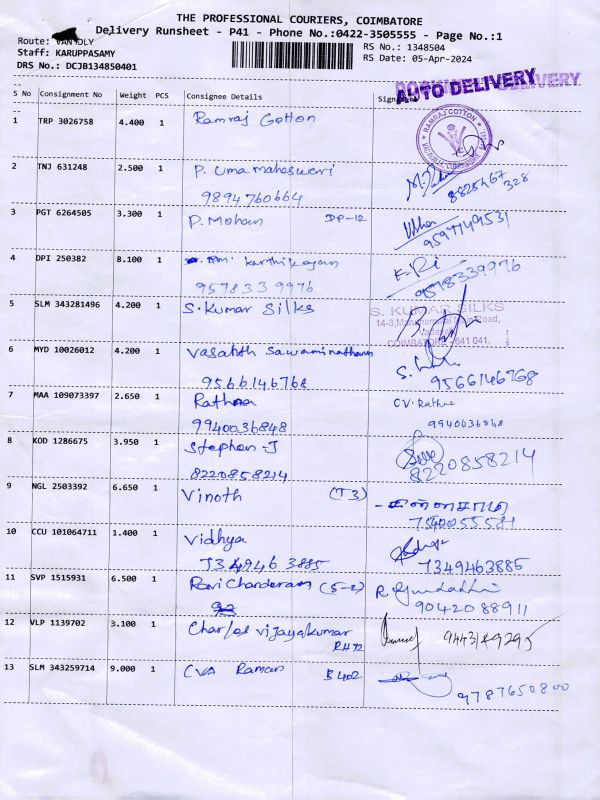 THE PROFESSIONAL COURIERS, COIMBATORE
Delivery Runsheet - P41 - Phone No.:0422-3505555 - Page No.:1
Route:
Staff: KARUPPASAMY
DRS No.: DCJB134850401
RS No.: 1348504
RS Date: 05-Apr-2024
AUTO DELIVERY
S No Consignment No Weight PCS Consignee Details
1 TRP 3026758 4.400 1 Ramraj Cotton
RAMRAJ COTTON
2 TNJ 631248 2.500 1 P. Uma maheswari
9894760664
8825467
328
3 PGT 6264505 3.300 1 P. Mohan DP-12
9597749531
4 DPI 250382 8.100 1 karthikayan
9578339976
9578339976
5 SLM 343281496 4.200 1 S. Kumar Silks
S. KUMAR SILKS
COIMBATORE - 641 041.
6 MYD 10026012 4.200 1 Vasanth Sawaminathann
9566146768
9566146768
7 MAA 109073397 2.650 1 Rathna
9940036848
CV. Rathna
9940036848
8 KOD 1286675 3.950 1 Stephen-J
8220858214
8220858214
9 NGL 2503392 6.650 1 Vinoth (T3)
10 CCU 101064711 1.400 1 Vidhya
7349463885
7349463885
11 SVP 1515931 6.500 1 Ravi Chanderan (S-2)
9042088911
12 VLP 1139702 3.100 1 Charles vijayakumar
R472
13 SLM 343259714 9.000 1 CVA Raman B402
9787650800